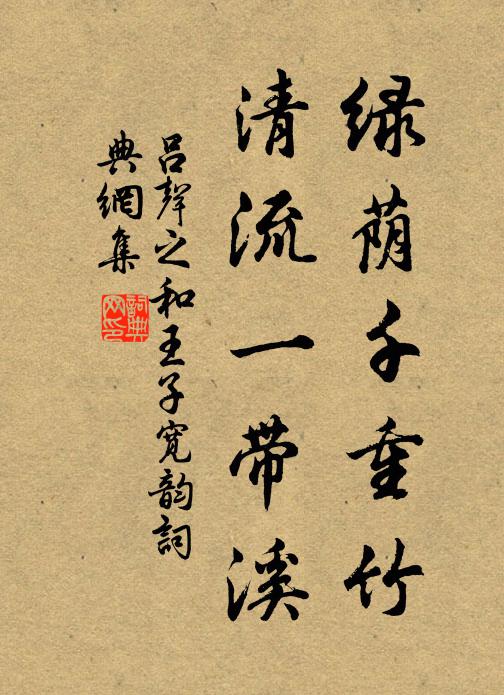 绿荫千重竹
清流一带溪
吕声之和王子宽韵词
典網集
詞典网印